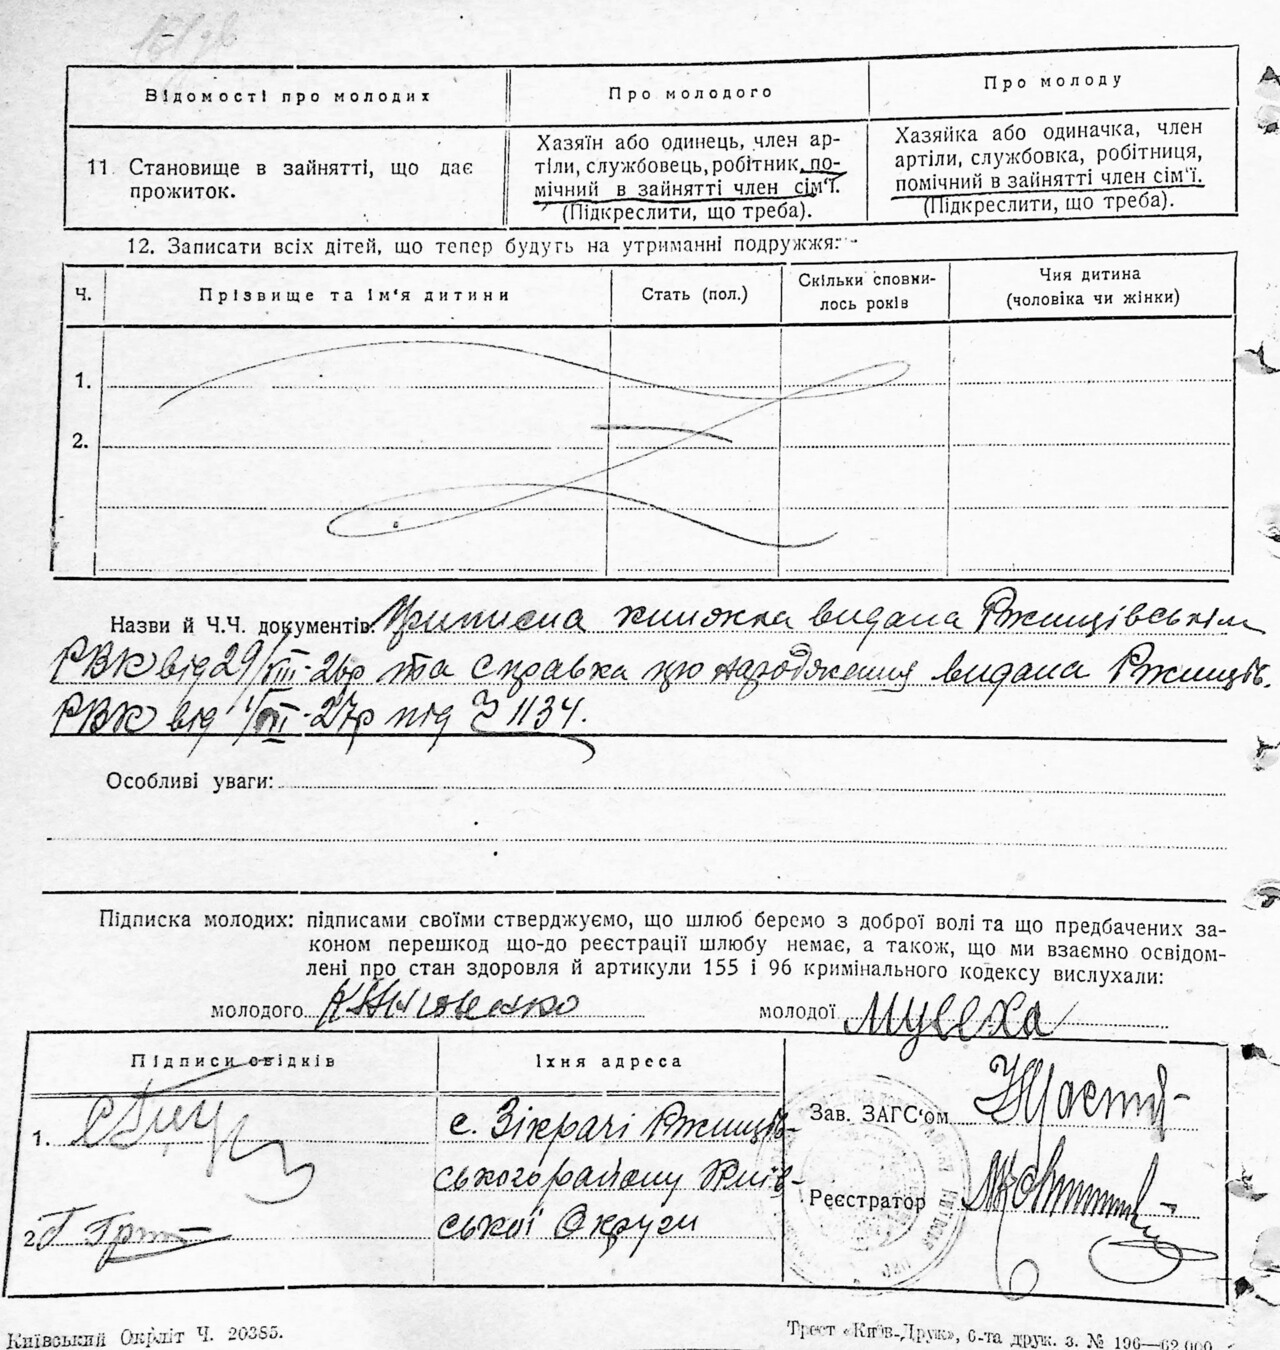 Відомості про молодих
Про молодого
Про молоду
11. Становище в зайнятті, що дає
прожиток.
Хазяїн або одинець, член ар-
тіли, службовець, робітник, по-
мічний в зайнятті член сім'ї.
(Підкреслити, що треба).
Хазяйка або одиначка, член
артіли, службовка, робітниця,
помічний в зайнятті член сім'ї.
(Підкреслити, що треба).
12. Записати всіх дітей, що тепер будуть на утриманні подружжя:
Ч.
Прізвище та ім'я дитини
Стать (пол.)
Скільки сповни-
лось років
Чия дитина
(чоловіка чи жінки)
1.
2.
Назви й Ч.Ч. документів: Приписна книжка видана Ржищівським
РВК від 29/VIII-26р та справка про народження видана Ржищів.
РВК від 1/VII-27р під Ч 1134.
Особливі уваги:
Підписка молодих: підписами своїми стверджуємо, що шлюб беремо з доброї волі та що предбачених за-
коном перешкод що-до реєстрації шлюбу немає, а також, що ми взаємно освідом-
лені про стан здоров'я й артикули 155 і 96 кримінального кодексу вислухали:
молодого
молодої
Підписи свідків
Їхня адреса
1.
с. Зікрачі Ржищів-
ського району Київ-
ської Округи
2.
Зав. ЗАГС'ом
Реєстратор
Київський Окрліт Ч. 20385.
Трест «Київ-Друк», 6-та друк. з. № 196—62.000